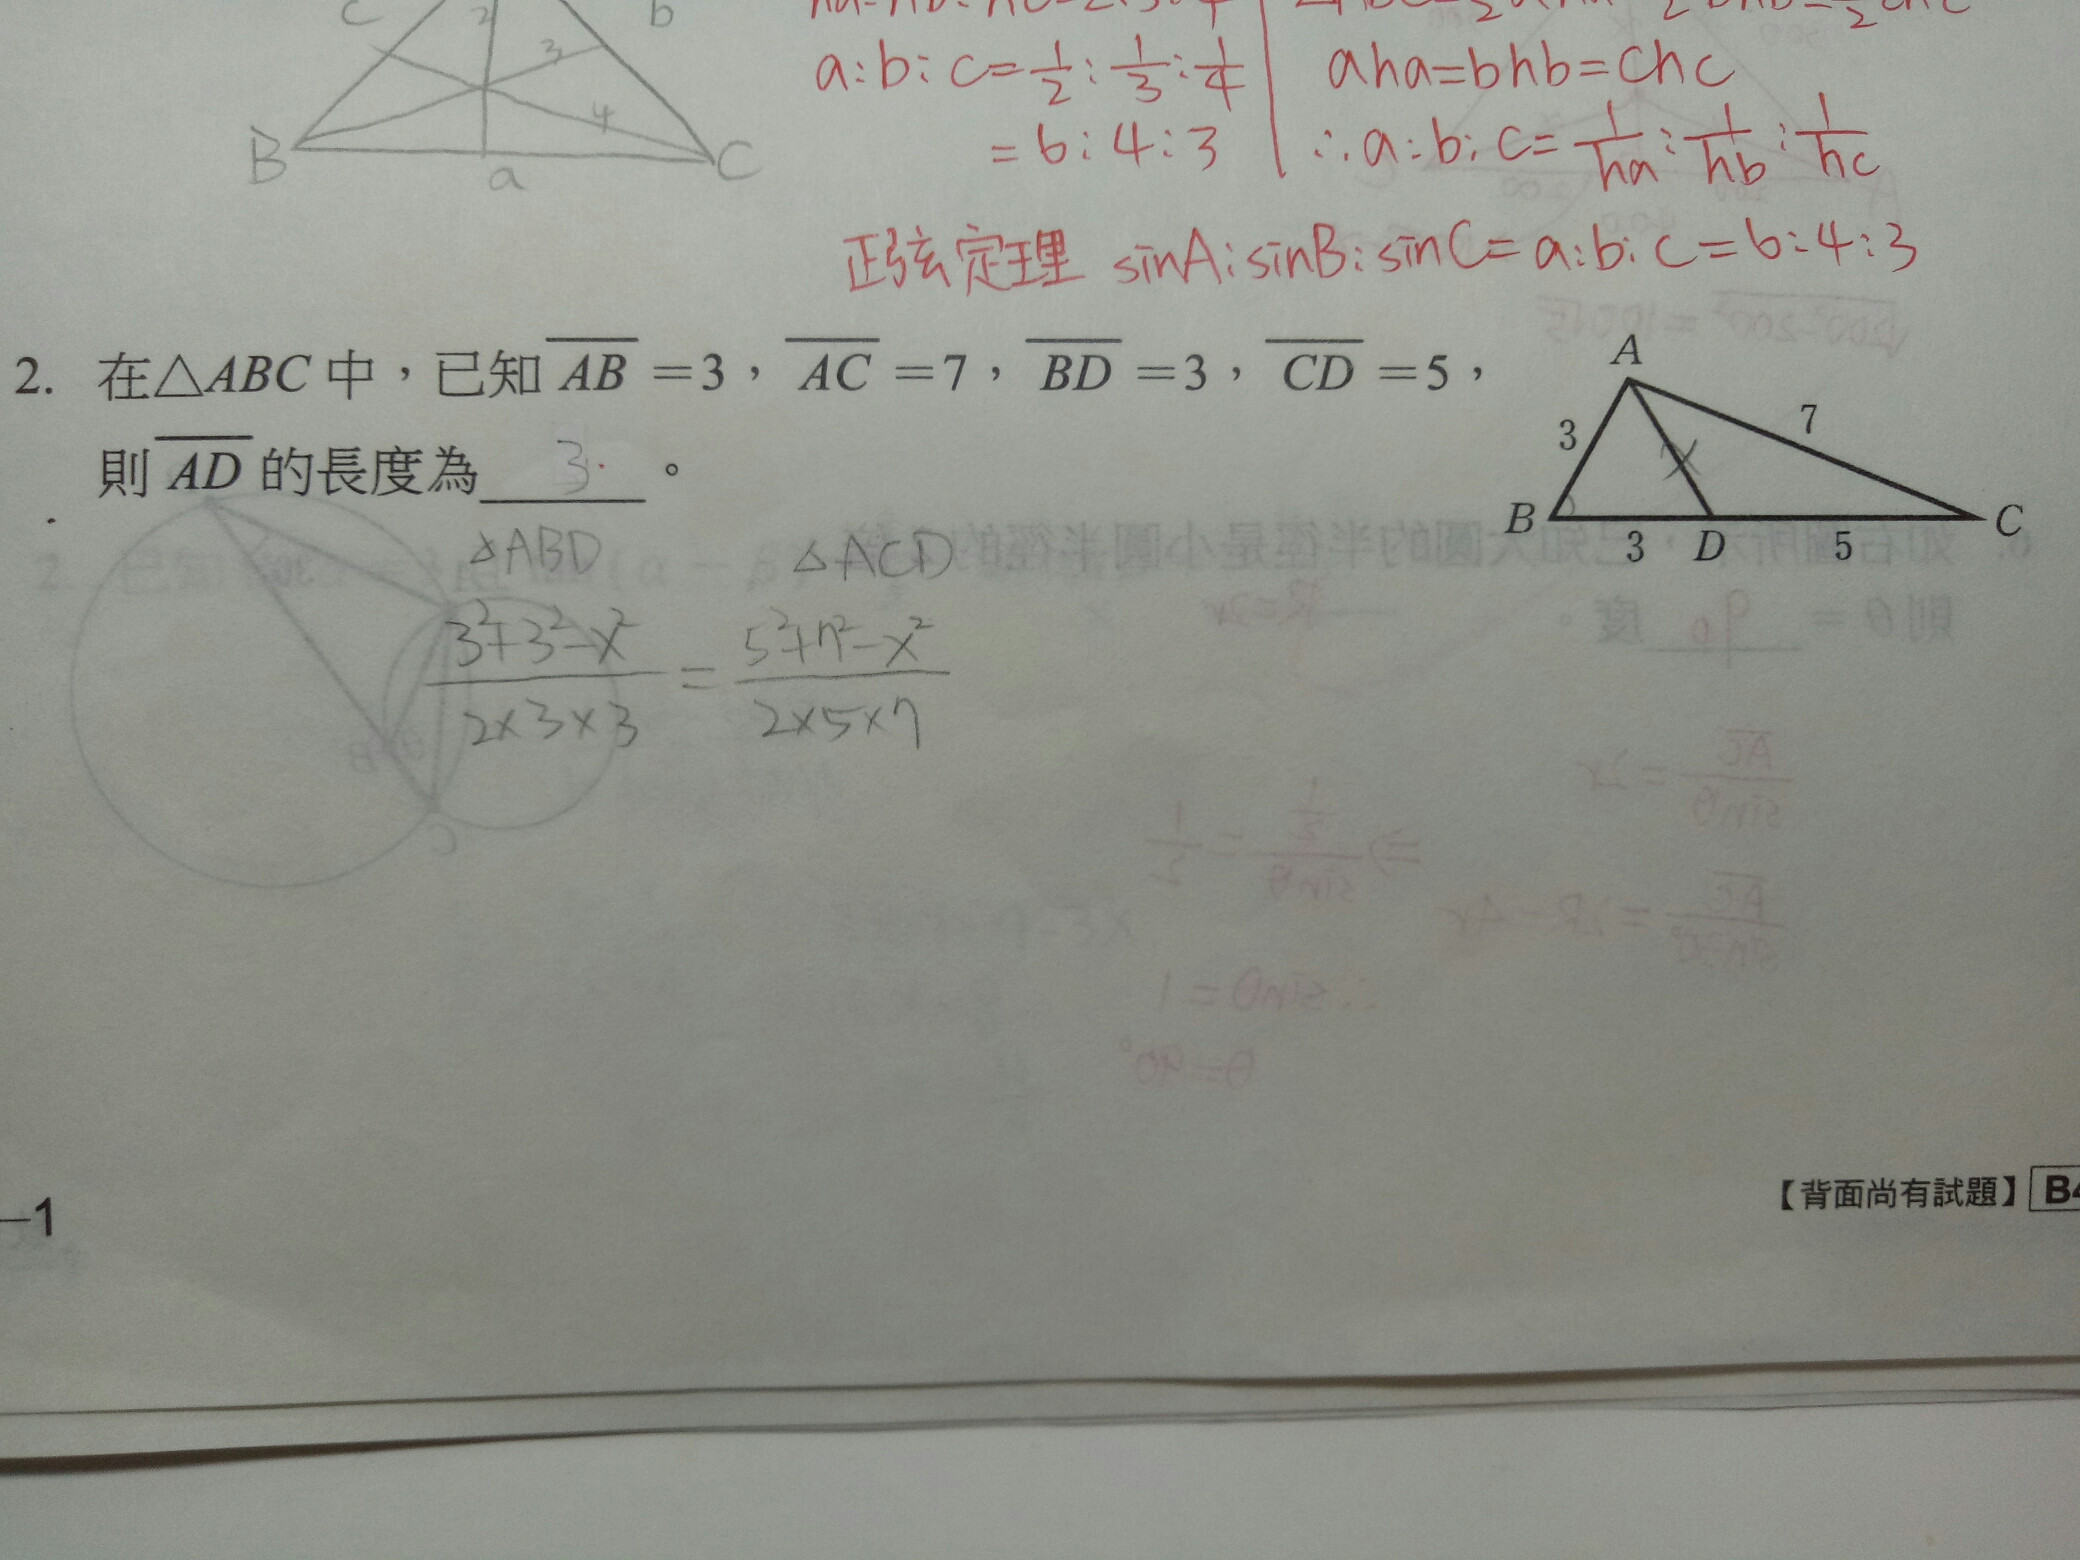 c 2 b
3
4
B a C
a:b:c=1/2:1/3:1/4
=6:4:3
aha=bhb=chc
∴a:b:c=1/ha:1/hb:1/hc
正弦定理 sinA:sinB:sinC=a:b:c=6:4:3
2. 在△ABC中，已知AB=3，AC=7，BD=3，CD=5，
則AD的長度為 3 。
A
3 x 7
B 3 D 5 C
△ABD △ACD
3²+3²-x² / 2×3×3 = 5²+7²-x² / 2×5×7
-1
【背面尚有試題】 B4